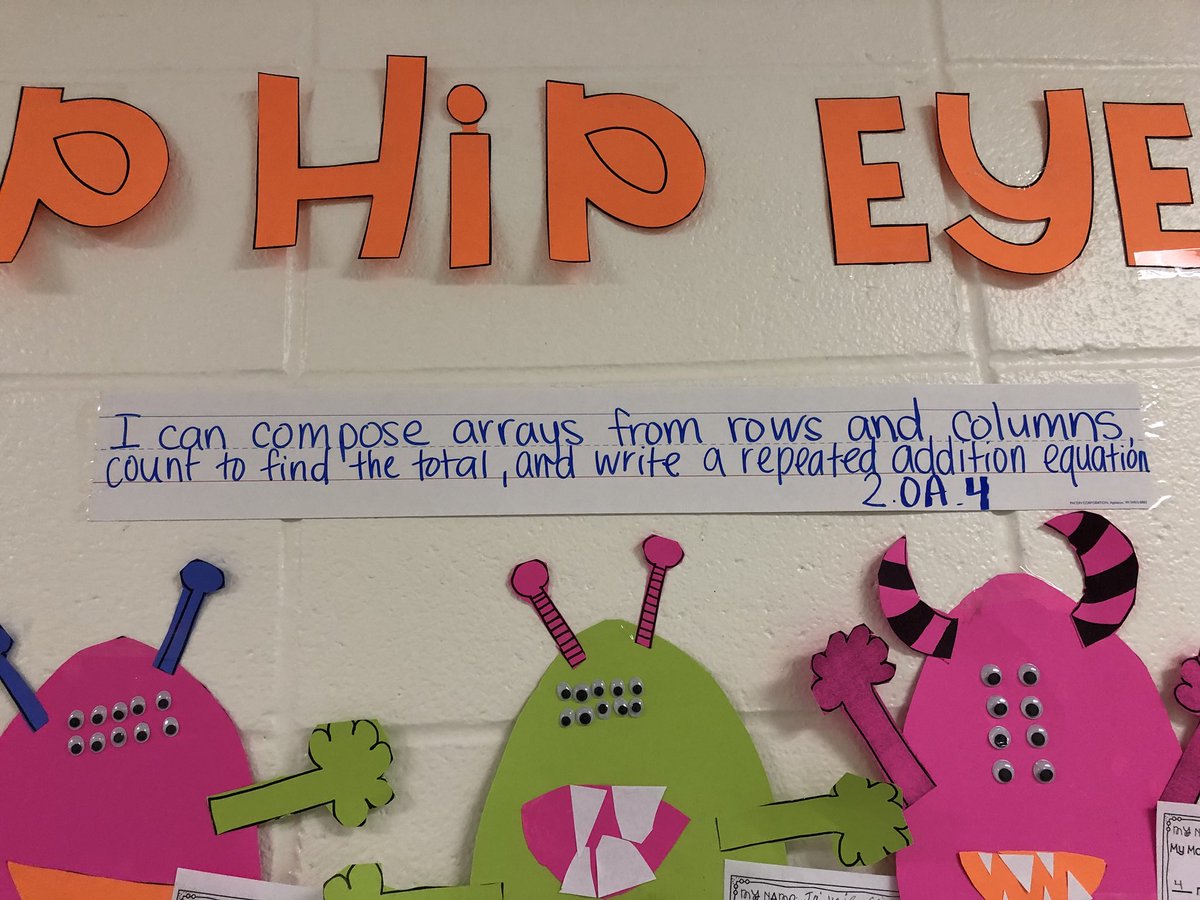 P HiP EYE
I can compose arrays from rows and columns,
count to find the total, and write a repeated addition equation
2.OA.4
My N
My Mo
4
My NAMe